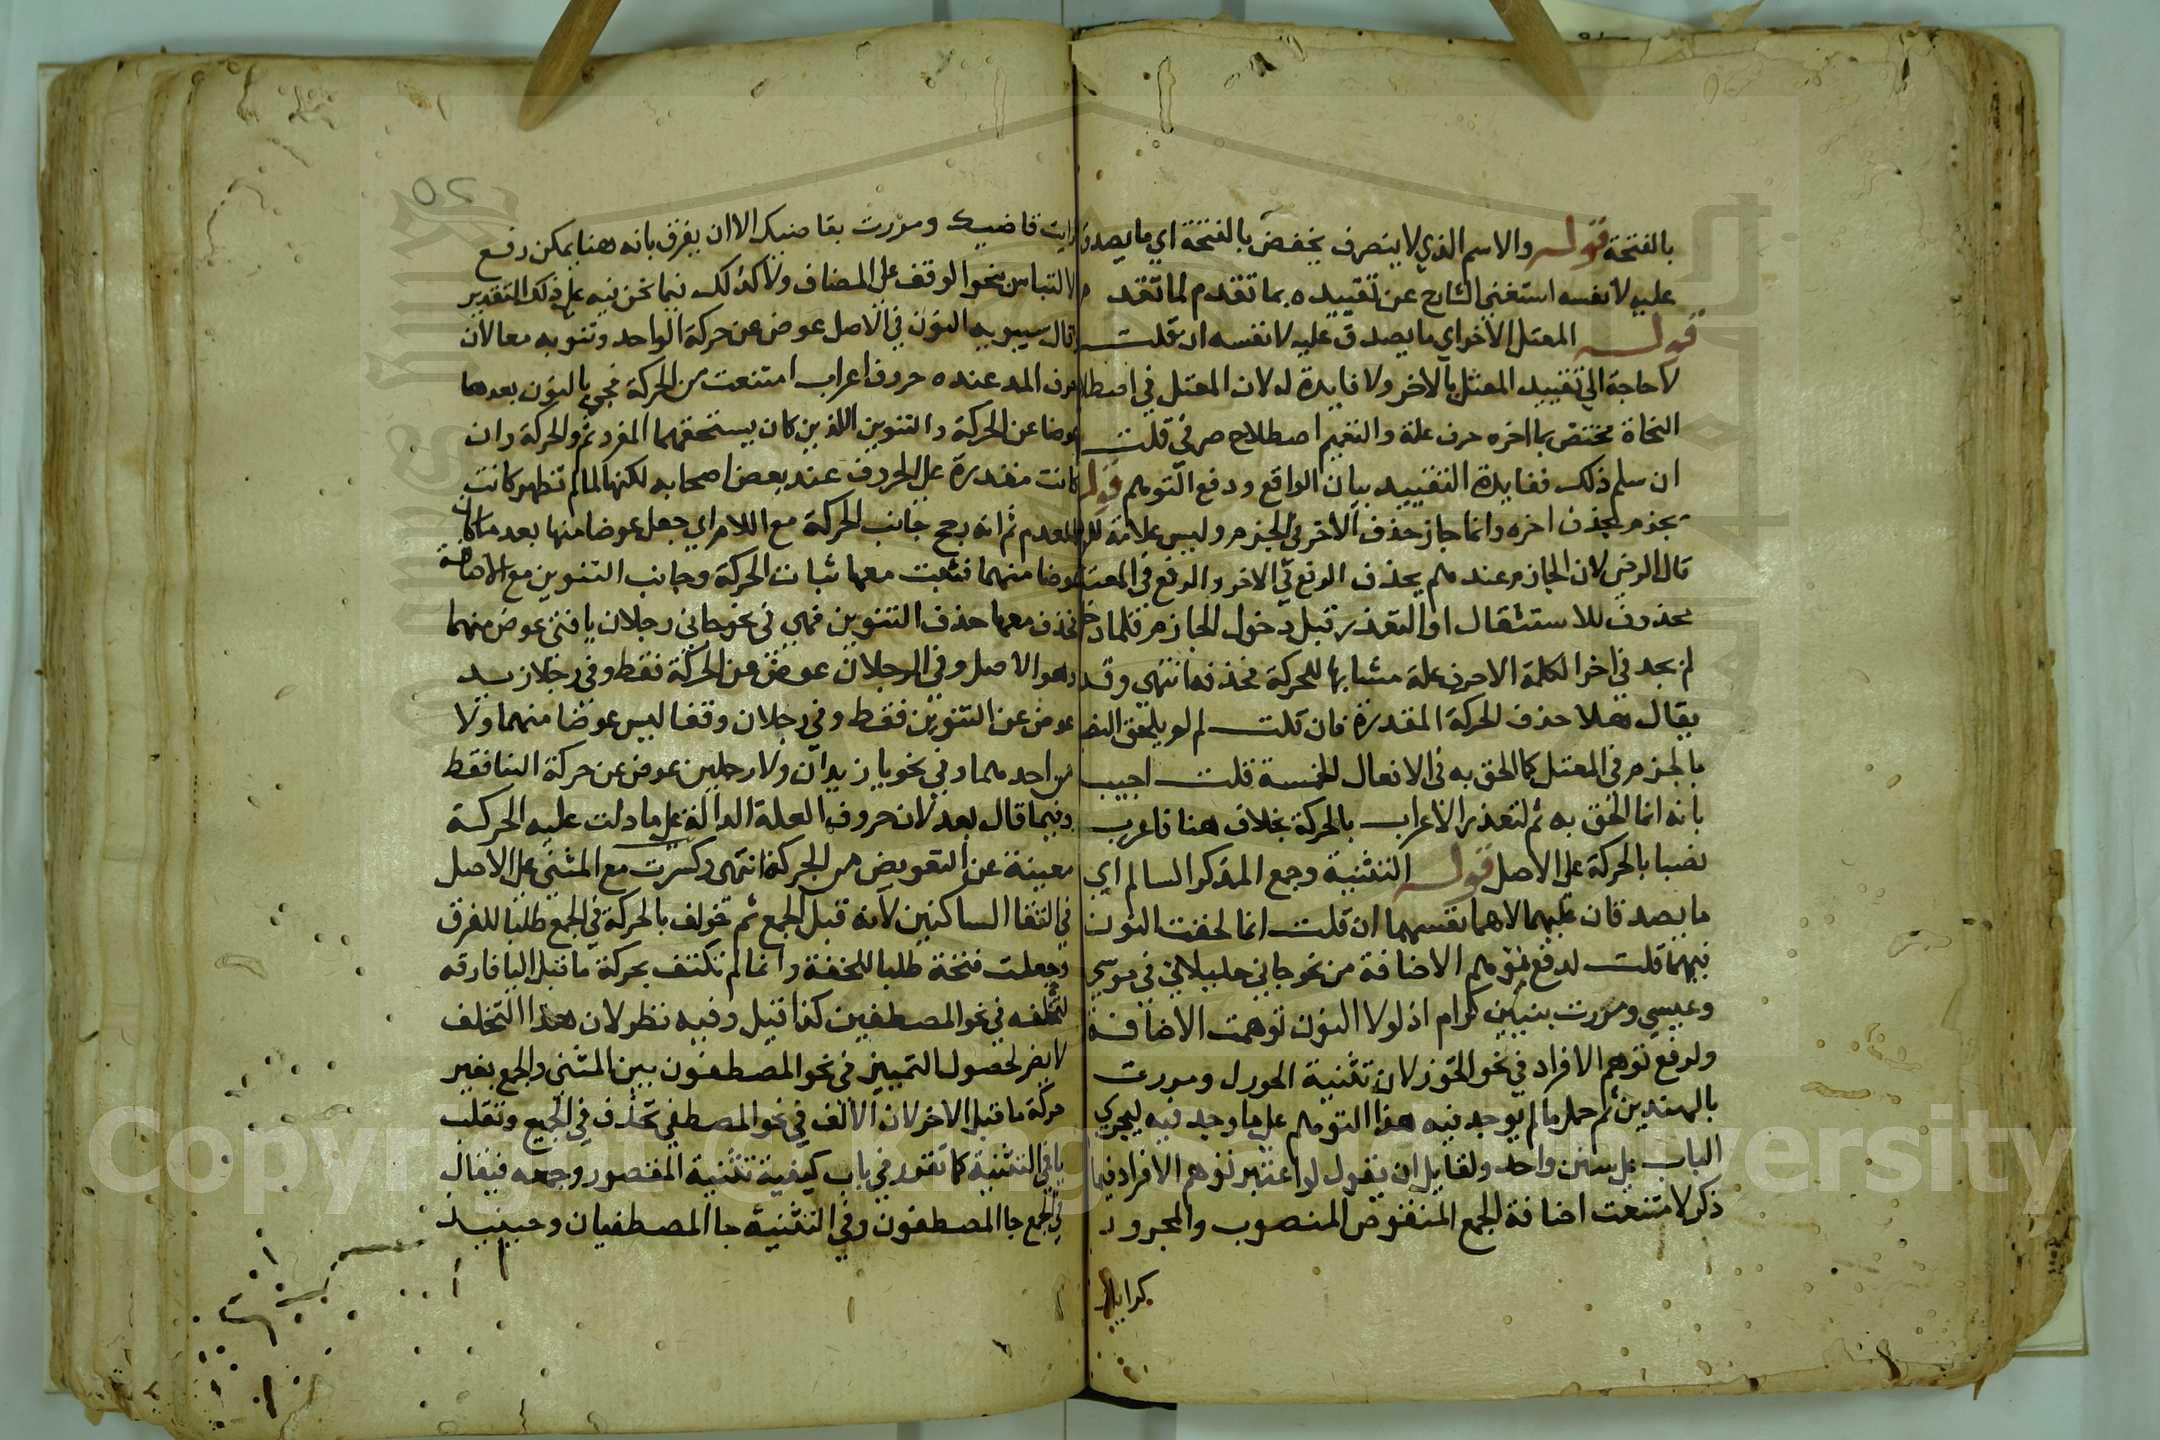 بالفتحة قوله والاسم الذي لا ينصرف يخفض بالفتحة اي ما يصدق
عليه لا نفسه استغنى الشارح عن تقييده بما تقدم لما تقدم
قوله المعتل الاخر اي ما يصدق عليه لا نفسه ان قلت
لا حاجة الي تقييد المعتل بالاخر ولا فايدة له لان المعتل في اصطلاح
النحاة مختص بما اخره حرف علة والتعميم اصطلاح صرفي قلت
ان سلم ذلك ففايدة التقييد بيان الواقع ودفع التوهم قوله
يجزم بحذف اخره وانما جاز حذف الاخر في الجزم وليس علامة للرفع
قال الرضي لان الجازم عندهم يحذف الرفع في الاخر والرفع في المعتل
محذوف للاستثقال او التعذر قبل دخول الجازم فلما دخل
لم يجد في اخر الكلمة الا حرف علة مشابها للحركة فحذفه انتهي وقد
يقال هلا حذف الحركة المقدرة فان قلت لم لو يلحق النصب
بالجزم في المعتل كما الحق به في الافعال الخمسة قلت اجيب
بانه انما الحق به ثم لتعذر الاعراب بالحركة بخلاف هنا فاعرب
نصبا بالحركة على الاصل قوله التثنية وجمع المذكر السالم اي
ما يصدقان عليهما لا هما نفسهما ان قلت انما لحقت النون
فيهما قلت لدفع توهم الاضافة من نحو جاني خليلاني في موسي
وعيسي ومررت ببنين كرام اذ لولا النون توهمت الاضافة
ولدفع توهم الافراد في نحو الخوزلان تثنية الخوزل ومررت
بالمهتدين ثم حمل ما لم يوجد فيه هذا التوهم على ما وجد فيه ليجري
الباب على سنن واحد ولقايل ان يقول لو اعتبر توهم الافراد فيما
ذكر لامتنعت اضافة الجمع المنقوص المنصوب والمجرور
كرايت
رايت قاضيك ومررت بقاضيك الا ان يفرق بانه هنا يمكن رفع
الالتباس بنحو الوقف على المضاف ولا كذلك فيما نحن فيه على ذلك التقدير
قال سيبويه النون في الاصل عوض عن حركة الواحد وتنوينه معا لان
حروف المد عنده حروف اعراب امتنعت من الحركة فجي بالنون بعدها
عوضا عن الحركة والتنوين اللذين كان يستحقهما المفرد ثم والحركة وان
كانت مقدرة على الحروف عند بعض اصحابه لكنها لما لم تظهر كانت
كالعدم ثم انه رجح جانب الحركة مع اللام اي جعل عوضا منها بعد ما كان
عوضا منهما فثبت معها ثبات الحركة وجانب التنوين مع الاضافة
فحذف معها حذف التنوين فهي في نحو جاني رجلان يا فتي عوض منهما
وهو الاصل وفي الرجلان عوض عن الحركة فقط وفي رجلا زيد
عوض عن التنوين فقط وفي رجلان وقفا ليس عوضا منهما ولا
من احدهما وفي نحو يا زيدان ولا رجلين عوض عن حركة البنا فقط
وفيما قال بعد لان حروف العلة الدالة على ما دلت عليه الحركة
مغنية عن التعويض من الحركة انتهى وكسرت مع المثنى على الاصل
في التقا الساكنين لانه قبل الجمع ثم خولف بالحركة في الجمع طلبا للفرق
وجعلت فتحة طلبا للخفة وانما لم نكتف بحركة ما قبل اليا فارقه
لتخلفه في نحو المصطفين كذا قيل وفيه نظر لان هذا التخلف
لا يضر لحصول التمييز في نحو المصطفون بين المثنى والجمع بغير
حركة ما قبل الاخر لان الالف في نحو المصطفي تحذف في الجمع وتقلب
يا في التثنية كما تقرر في باب كيفية تثنية المقصور وجمعه فيقال
في الجمع جا المصطفون وفي التثنية جا المصطفيان وحينيذ